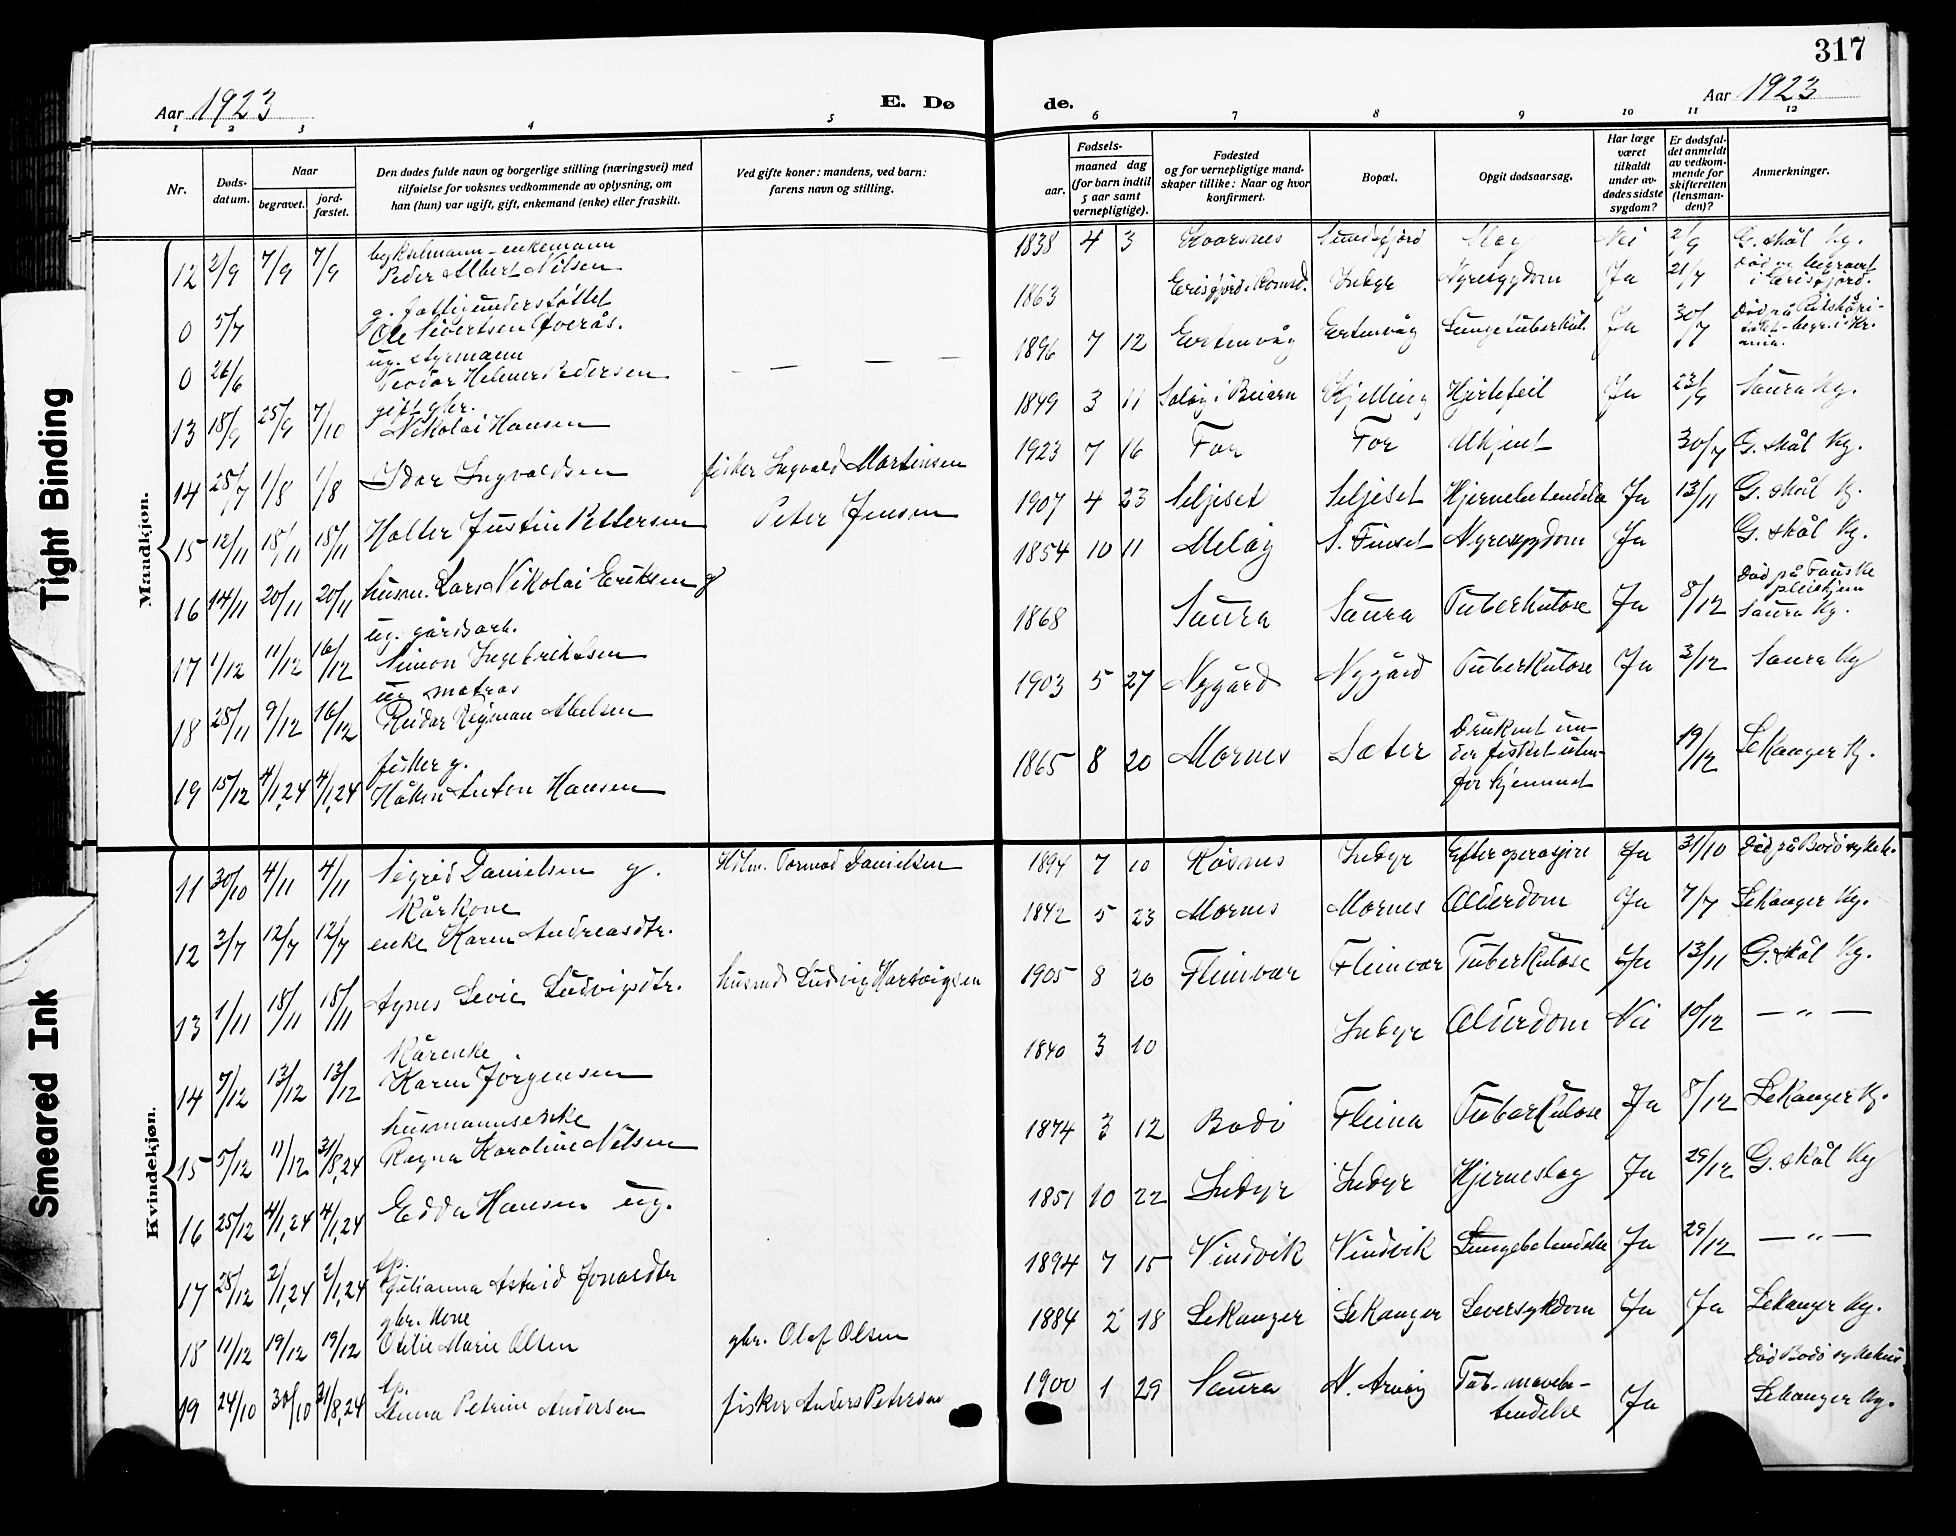 317
Aar 1923 E. Dø de. Aar 1923
1 2 3 4 5 6 7 8 9 10 11 12
Nr. Døds-datum. Naar begravet. jord-fæstet. Den dødes fulde navn og borgerlige stilling (næringsvei) med tilføielse for voksnes vedkommende av oplysning, om han (hun) var ugift, gift, enkemand (enke) eller fraskilt. Ved gifte koner: mandens, ved barn: farens navn og stilling. Fødsels- aar. maaned dag (for barn indtil 5 aar samt vernepligtige). Fødested og for vernepligtige mandskaper tillike: Naar og hvor konfirmert. Bopæl. Opgit dødsaarsag. Har læge været tilkaldt under avdødes sidste sygdom? Er dødsfaldet anmeldt av vedkommende for skifteretten (lensmanden)? Anmerkninger.
Mandkjøn.
12 2/9 7/9 7/9 enkemann Peder Albert Nilsen 1838 4 3 Nei 2/9 G. skål Kg.
0 5/7 g. fattigunderstøttet Ole Sivertsen Øverås. 1863 Indyr Nyresygdom Ja 21/7
0 26/6 ug. styrmann Teodor Helmer Pedersen 1896 7 12 Ertenvåg Ertenvåg Lungetuberkul. Ja 30/7
13 18/9 25/9 7/10 gift gbr. Nikolai Hansen 1849 3 11 i Beiarn Kjelling Hjertefeil Ja 23/9 Saura Kg.
14 25/7 1/8 1/8 Idar Ingvaldsen fisker Ingvald Martinsen 1923 7 16 For For Ukjent 30/7 G. skål Kg.
15 12/11 18/11 18/11 Halter Justin Pettersen Peter Jensen 1907 4 23 Seljeset Seljeset Hjernebetendelse Ja 13/11 G. skål K.
16 14/11 20/11 20/11 husm. Lars Nikolai Eriksen g 1854 10 11 Meløy S. Finset Nyresygdom Ja G. skål Kg.
17 1/12 11/12 16/12 ug. gårdsarb. Simon Ingebriktsen 1868 Saura Saura Tuberkulose Ja 8/12 Død på Fauske pleiehjem Saura Kg.
18 25/11 9/12 16/12 ug matros Reidar Abelsen 1903 5 27 Nygård Nygård Tuberkulose Ja 3/12 Saura Kg
19 15/12 4/1,24 4/1,24 fisker g. Håken Anton Hansen 1865 8 20 Mornes Sæter Druknet under fisket utenfor hjemmet 19/12 Lekanger K.
Kvindekjøn.
11 30/10 4/11 4/11 Sigrid Danielsen g. Tormod Danielsen 1894 7 10 Røsnes Indyr Efter operasjon Ja 31/10 Død på Bodø sykeh.
12 3/7 12/7 12/7 Kårkone enke Karen Andreasdtr. 1842 5 23 Mornes Mornes Alderdom Ja 7/7 Lekanger Kg.
13 1/11 18/11 18/11 Agnes Levie Ludvigsdtr. husmd Ludvig Hartvigsen 1905 8 20 Fleinvær Fleinvær Tuberkulose Ja 13/11 G. skål Kg.
14 7/12 13/12 13/12 Kårenke Karen Jörgensen 1840 3 10 Indyr Alderdom Nei 10/12 — " —
15 5/12 11/12 31/8,24 husmannsenke Ragna Karoline Nilsen 1874 3 12 Bodø Fleina Tuberkulose Ja 8/12 Lekanger K.
16 25/12 4/1,24 4/1,24 Edda Hansen ug. 1851 10 22 Indyr Indyr Hjerneslag Ja 29/12 G. skål Kg
17 28/12 2/1,24 2/1,24 tp. Julianna Astrid Jonasdtr 1894 7 15 Vindvik Vindvik Lungebetendelse Ja 29/12 — " —
18 11/12 19/12 19/12 gbr. kone Otilie Marie Olsen gbr. Olaf Olsen 1884 2 18 Lekanger Lekanger Leversykdom Ja Ja Lekanger Kg.
19 24/10 30/10 31/8,24 tp. Anna Petrine Andersen fisker Anders Petersen 1900 1 29 Saura N. Arnøy Tub. mavebetendelse Ja Død Bodø sykehus Lekanger Kg.
Tight Binding
Smeared Ink